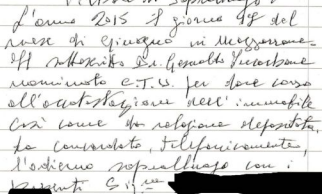 L'anno 2015 il giorno 18 del
mese di Giugno in Mezzarrone
Il sottoscritto Dr. Gesualdo
nominato C.T.U. per dare corso
all'accatastazione dell'immobile
così come da relazione depositata,
ha concordato, telefonicamente,
l'odierno sopralluogo con i
presenti Sig.